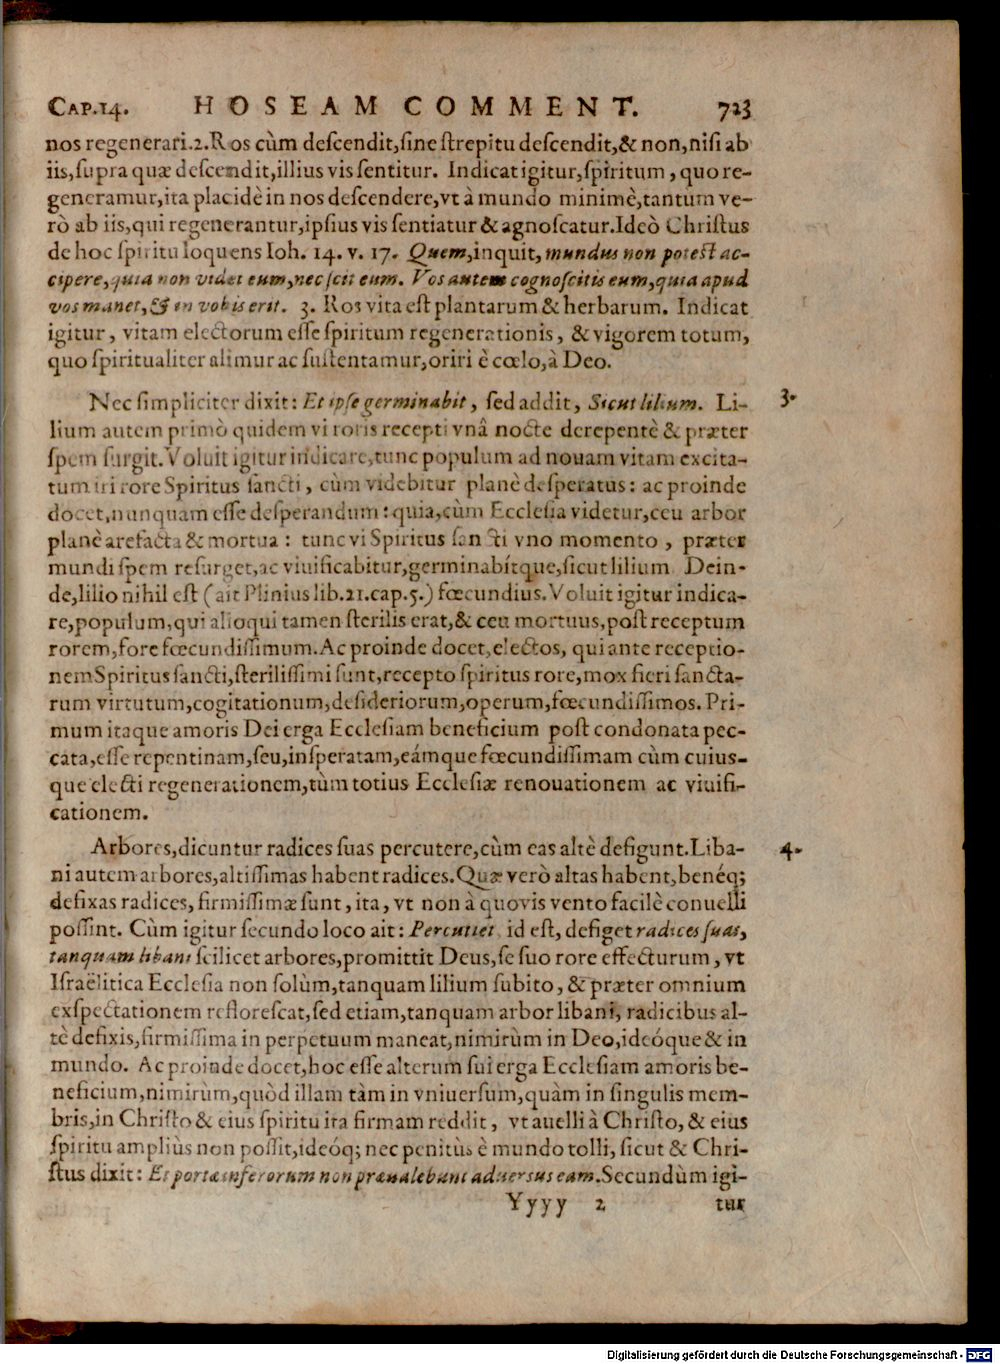 CAP.14. HOSEAM COMMENT. 723
nos regenerari.2.Ros cùm deſcendit,ſine ſtrepitu deſcendit,& non,niſi ab
iis,ſupra quæ deſcendit,illius vis ſentitur. Indicat igitur,ſpiritum, quo re-
generamur,ita placidè in nos deſcendere,vt à mundo minimè,tantum ve-
rò ab iis,qui regenerantur,ipſius vis ſentiatur & agnoſcatur.Ideò Chriſtus
de hoc ſpiritu loquens Ioh. 14. v. 17. Quem,inquit, mundus non poteſt ac-
cipere,quia non videt eum,nec ſcit eum. Vos autem cognoſcitis eum,quia apud
vos manet,& in vobis erit. 3. Ros vita eſt plantarum & herbarum. Indicat
igitur, vitam electorum eſſe ſpiritum regenerationis, & vigorem totum,
quo ſpiritualiter alimur ac ſuſtentamur,oriri è cœlo,à Deo.
Nec ſimpliciter dixit: Et ipſe germinabit, ſed addit, Sicut lilium. Li- 3.
lium autem primò quidem vi roris recepti vnâ nocte derepentè & præter
ſpem ſurgit.Voluit igitur indicare,tunc populum ad nouam vitam excita-
tum iri rore Spiritus ſancti, cùm videbitur planè deſperatus: ac proinde
docet,nunquam eſſe deſperandum: quia,cùm Eccleſia videtur,ceu arbor
planè arefacta & mortua: tunc vi Spiritus ſancti vno momento, præter
mundi ſpem reſurget,ac viuificabitur,germinabítque,ſicut lilium Dein-
de,lilio nihil eſt (ait Plinius lib.21.cap.5.) fœcundius.Voluit igitur indica-
re,populum,qui alioqui tamen ſterilis erat,& ceu mortuus,poſt receptum
rorem,fore fœcundiſſimum.Ac proinde docet,electos, qui ante receptio-
nem Spiritus ſancti,ſteriliſſimi ſunt,recepto ſpiritus rore,mox fieri ſancta-
rum virtutum,cogitationum,deſideriorum,operum,fœcundiſſimos. Pri-
mum itaque amoris Dei erga Eccleſiam beneficium poſt condonata pec-
cata,eſſe repentinam,ſeu,inſperatam,eámque fœcundiſſimam cùm cuius-
que electi regenerationem,tùm totius Eccleſiæ renouationem ac viuifi-
cationem.
Arbores,dicuntur radices ſuas percutere,cùm eas altè defigunt.Liba- 4.
ni autem arbores,altiſſimas habent radices.Quæ verò altas habent,benéq;
defixas radices, firmiſſimæ ſunt, ita, vt non à quovis vento facilè conuelli
poſſint. Cùm igitur ſecundo loco ait: Percutiet id eſt, defiget radices ſuas,
tanquam libani ſcilicet arbores,promittit Deus,ſe ſuo rore effecturum, vt
Iſraëlitica Eccleſia non ſolùm,tanquam lilium ſubito, & præter omnium
exſpectationem refloreſcat,ſed etiam,tanquam arbor libani, radicibus al-
tè defixis,firmiſſima in perpetuum maneat,nimirùm in Deo,ideóque & in
mundo. Ac proinde docet,hoc eſſe alterum ſui erga Eccleſiam amoris be-
neficium,nimirùm,quòd illam tàm in vniuerſum,quàm in ſingulis mem-
bris,in Chriſto & eius ſpiritu ita firmam reddit, vt auelli à Chriſto, & eius
ſpiritu ampliùs non poſſit,ideóq; nec penitùs è mundo tolli, ſicut & Chri-
ſtus dixit: Et portæ inferorum non præualebunt aduersus eam.Secundùm igi-
Yyyy 2 tur
Digitalisierung gefördert durch die Deutsche Forschungsgemeinschaft - DFG